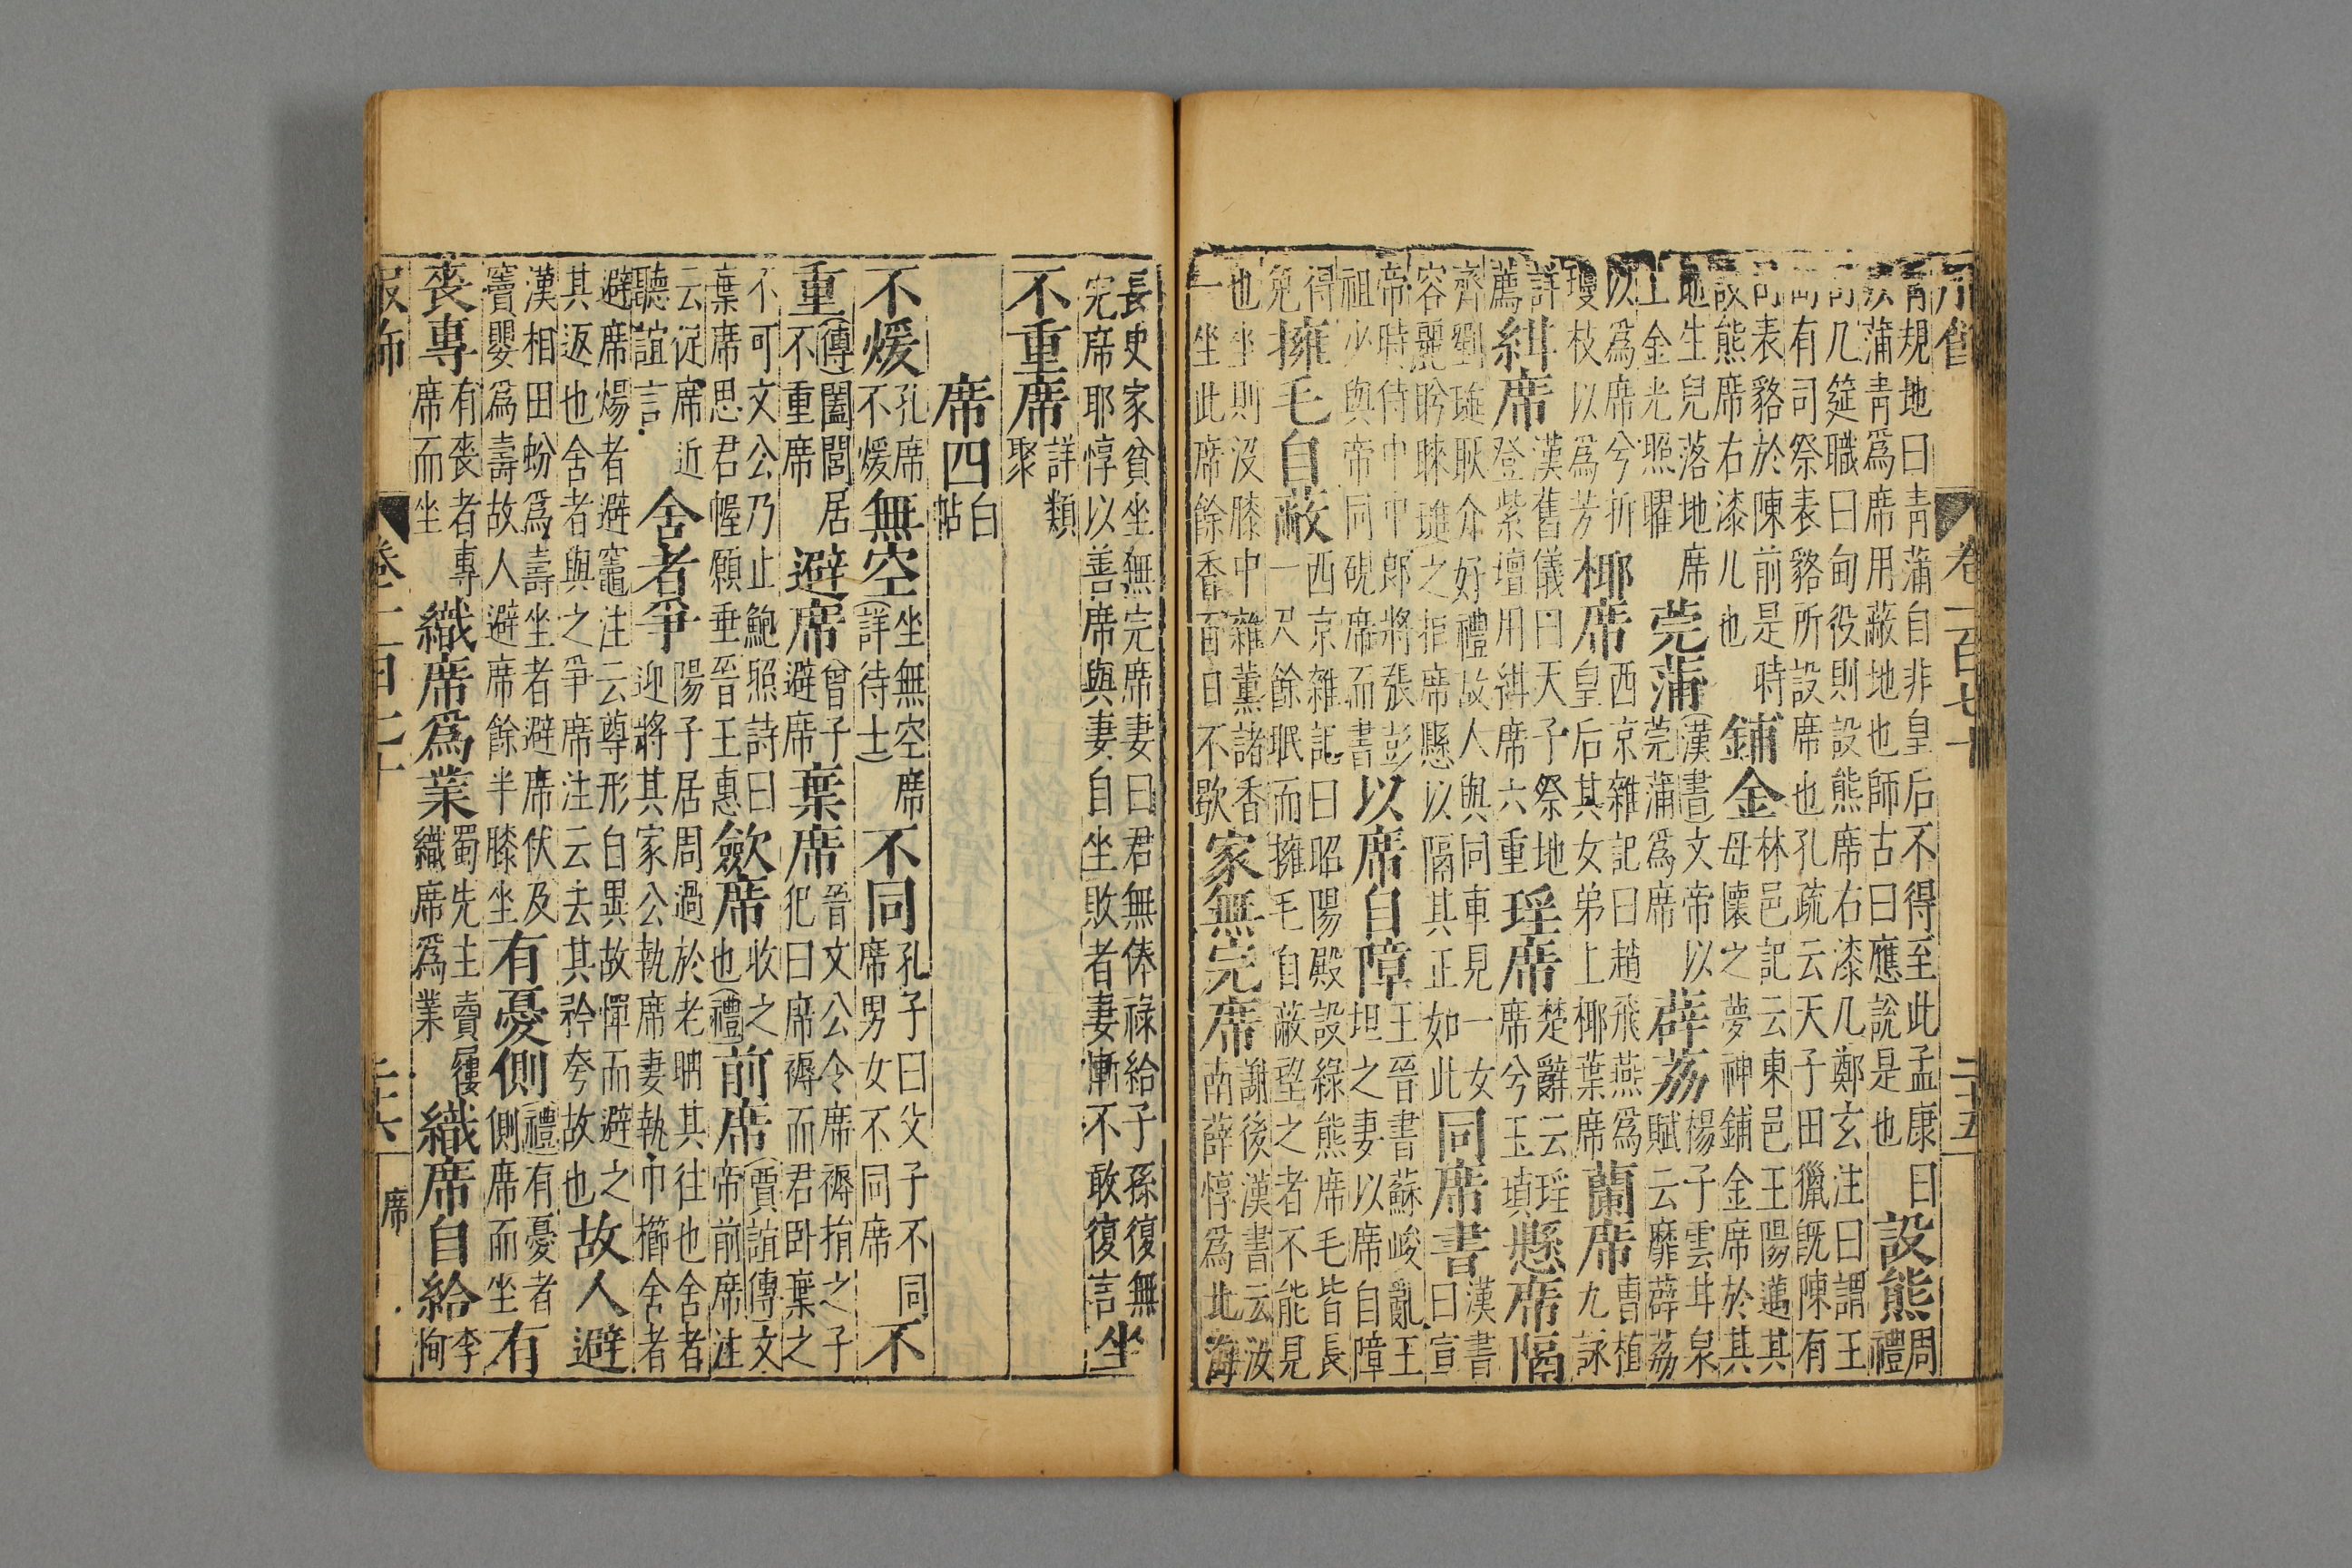 青規地曰青蒲自非皇后不得至此孟康曰
以蒲青爲席用蔽地也師古曰應說是也
設熊
周
禮
司几筵職曰甸役則設熊席右漆几鄭玄注曰謂王
甸有司祭表貉所設席也孔疏云天子田獵既陳有
司表貉於陳前是時
設熊席右漆几也
鋪金
林邑記云東邑王陽邁其
母懷之夢神鋪金席於其
地生兒落地席
上金光照曜
莞蒲
漢書文帝以
莞蒲爲席
薜荔
楊子雲甘泉
賦云靡薜荔
以爲席兮折
瓊枝以爲芳
椰席
西京雜記曰趙飛燕爲
皇后其女弟上椰葉席
蘭席
曹植
九詠
詳
薦
緝席
漢舊儀曰天子祭地
登紫壇用緝席六重
瑶席
楚辭云瑶
席兮玉瑱
懸席隔
齊劉璡耿介好禮故人與同車見一女
容麗盻睞璡之拒席懸以隔其正如此
同席書
漢書
曰宣
帝時侍中中郎將張彭
祖少與帝同硯席而書
以席自障
王晉書蘇峻亂王
坦之妻以席自障
得
免
擁毛自蔽
西京雜記曰昭陽殿設綠熊席毛皆長
一尺餘眠而擁毛自蔽望之者不能見
也坐則没膝中雜薰諸香
一坐此席餘香百日不歇
家無完席
謝後漢書云汝
南薛惇爲北海
長史家貧坐無完席妻曰君無俸祿給子孫復無
完席耶惇以善席與妻自坐敗者妻慚不敢復言
坐
不重席
詳類
聚
席四
白
帖
不煖
孔席
不煖
無空
坐無空席
詳待士
不同
孔子曰父子不同
席男女不同席
不
重
傳闔閭居
不重席
避席
曾子
避席
棄席
晉文公令席褥捐之子
犯曰席褥而君臥棄之
不可文公乃止鮑照詩曰
棄席思君幄願垂晉王惠
斂席
收之
也禮
前席
賈誼傳文
帝前席注
云促席近
聽誼言
舍者爭
陽子居周過於老聃其往也舍者
迎將其家公執席妻執巾櫛舍者
避席煬者避竈注云尊形自異故憚而避之
其返也舍者與之爭席注云去其矜夸故也
故人避
漢相田蚡爲壽坐者避席伏及
竇嬰爲壽故人避席餘半膝坐
有憂側
禮有憂者
側席而坐
有
喪專
有喪者專
席而坐
織席爲業
蜀先主賣屨
織席爲業
織席自給
李
恂
服飾
席